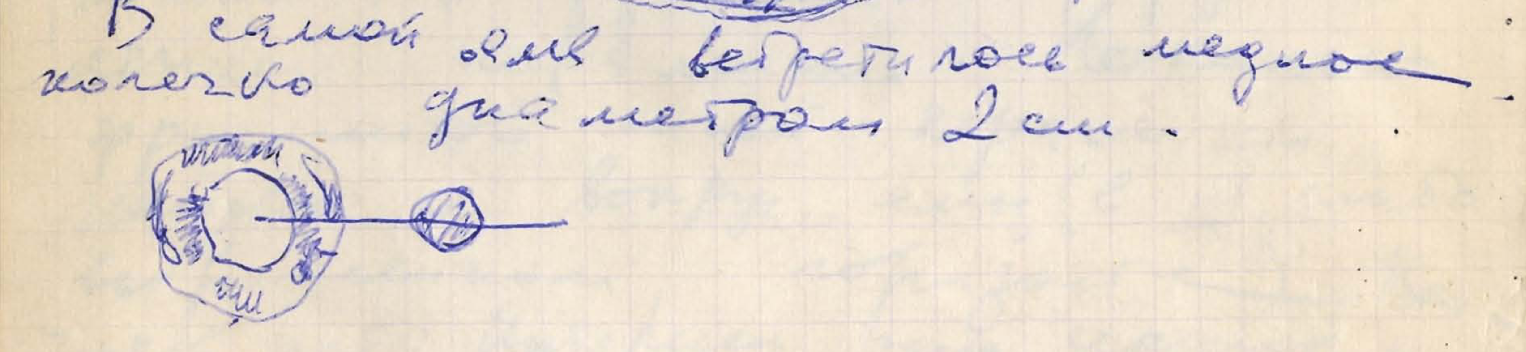 В самой яме встретилось медное
колечко диаметром 2 см.